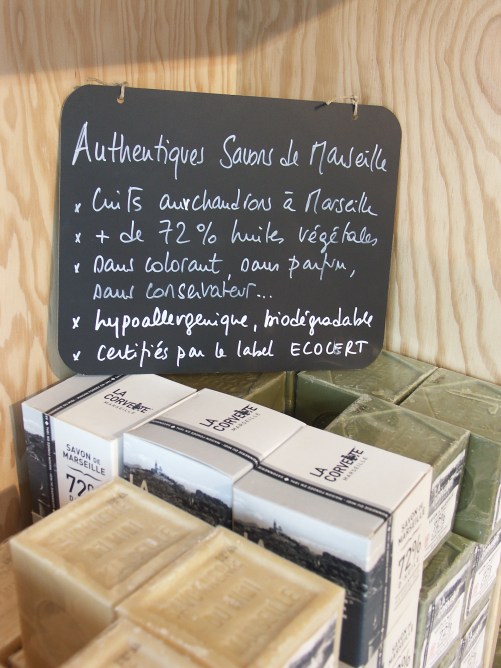 Authentiques Savons de Marseille
x Cuits aux chaudrons à Marseille
x + de 72% huiles végétales
x Sans colorant, sans parfum,
sans conservateur...
x hypoallergenique, biodégradable
x certifiés par le label ECOCERT
LA
CORVETTE
MARSEILLE
LA
CORVETTE
MARSEILLE
LA
CORVETTE
MARSEILLE
SAVON DE
MARSEILLE
72%
SAVON DE
MARSEILLE
72%